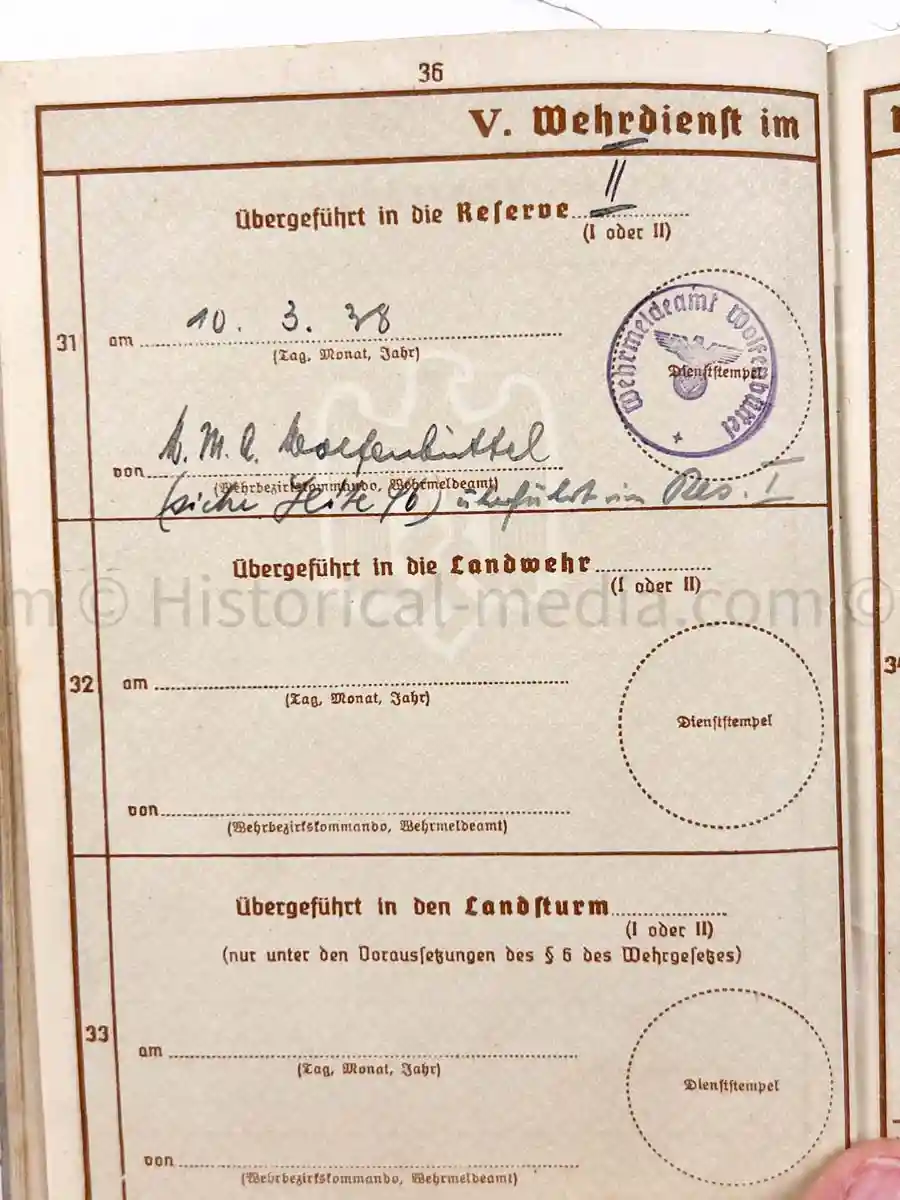 36
V. Wehrdienst im
Übergeführt in die Reserve II
(I oder II)
31 am 10. 3. 38
(Tag, Monat, Jahr)
Wehrmeldeamt Wolfenbüttel
Dienststempel
von W. M. A. Wolfenbüttel
(Wehrbezirkskommando, Wehrmeldeamt)
(siehe Seite 16) überführt in Res. I
Übergeführt in die Landwehr
(I oder II)
m © Historical-media.com ©
32 am
(Tag, Monat, Jahr)
Dienststempel
34
von
(Wehrbezirkskommando, Wehrmeldeamt)
Übergeführt in den Landsturm
(I oder II)
(nur unter den Voraussetzungen des § 6 des Wehrgesetzes)
33 am
(Tag, Monat, Jahr)
Dienststempel
von
(Wehrbezirkskommando, Wehrmeldeamt)